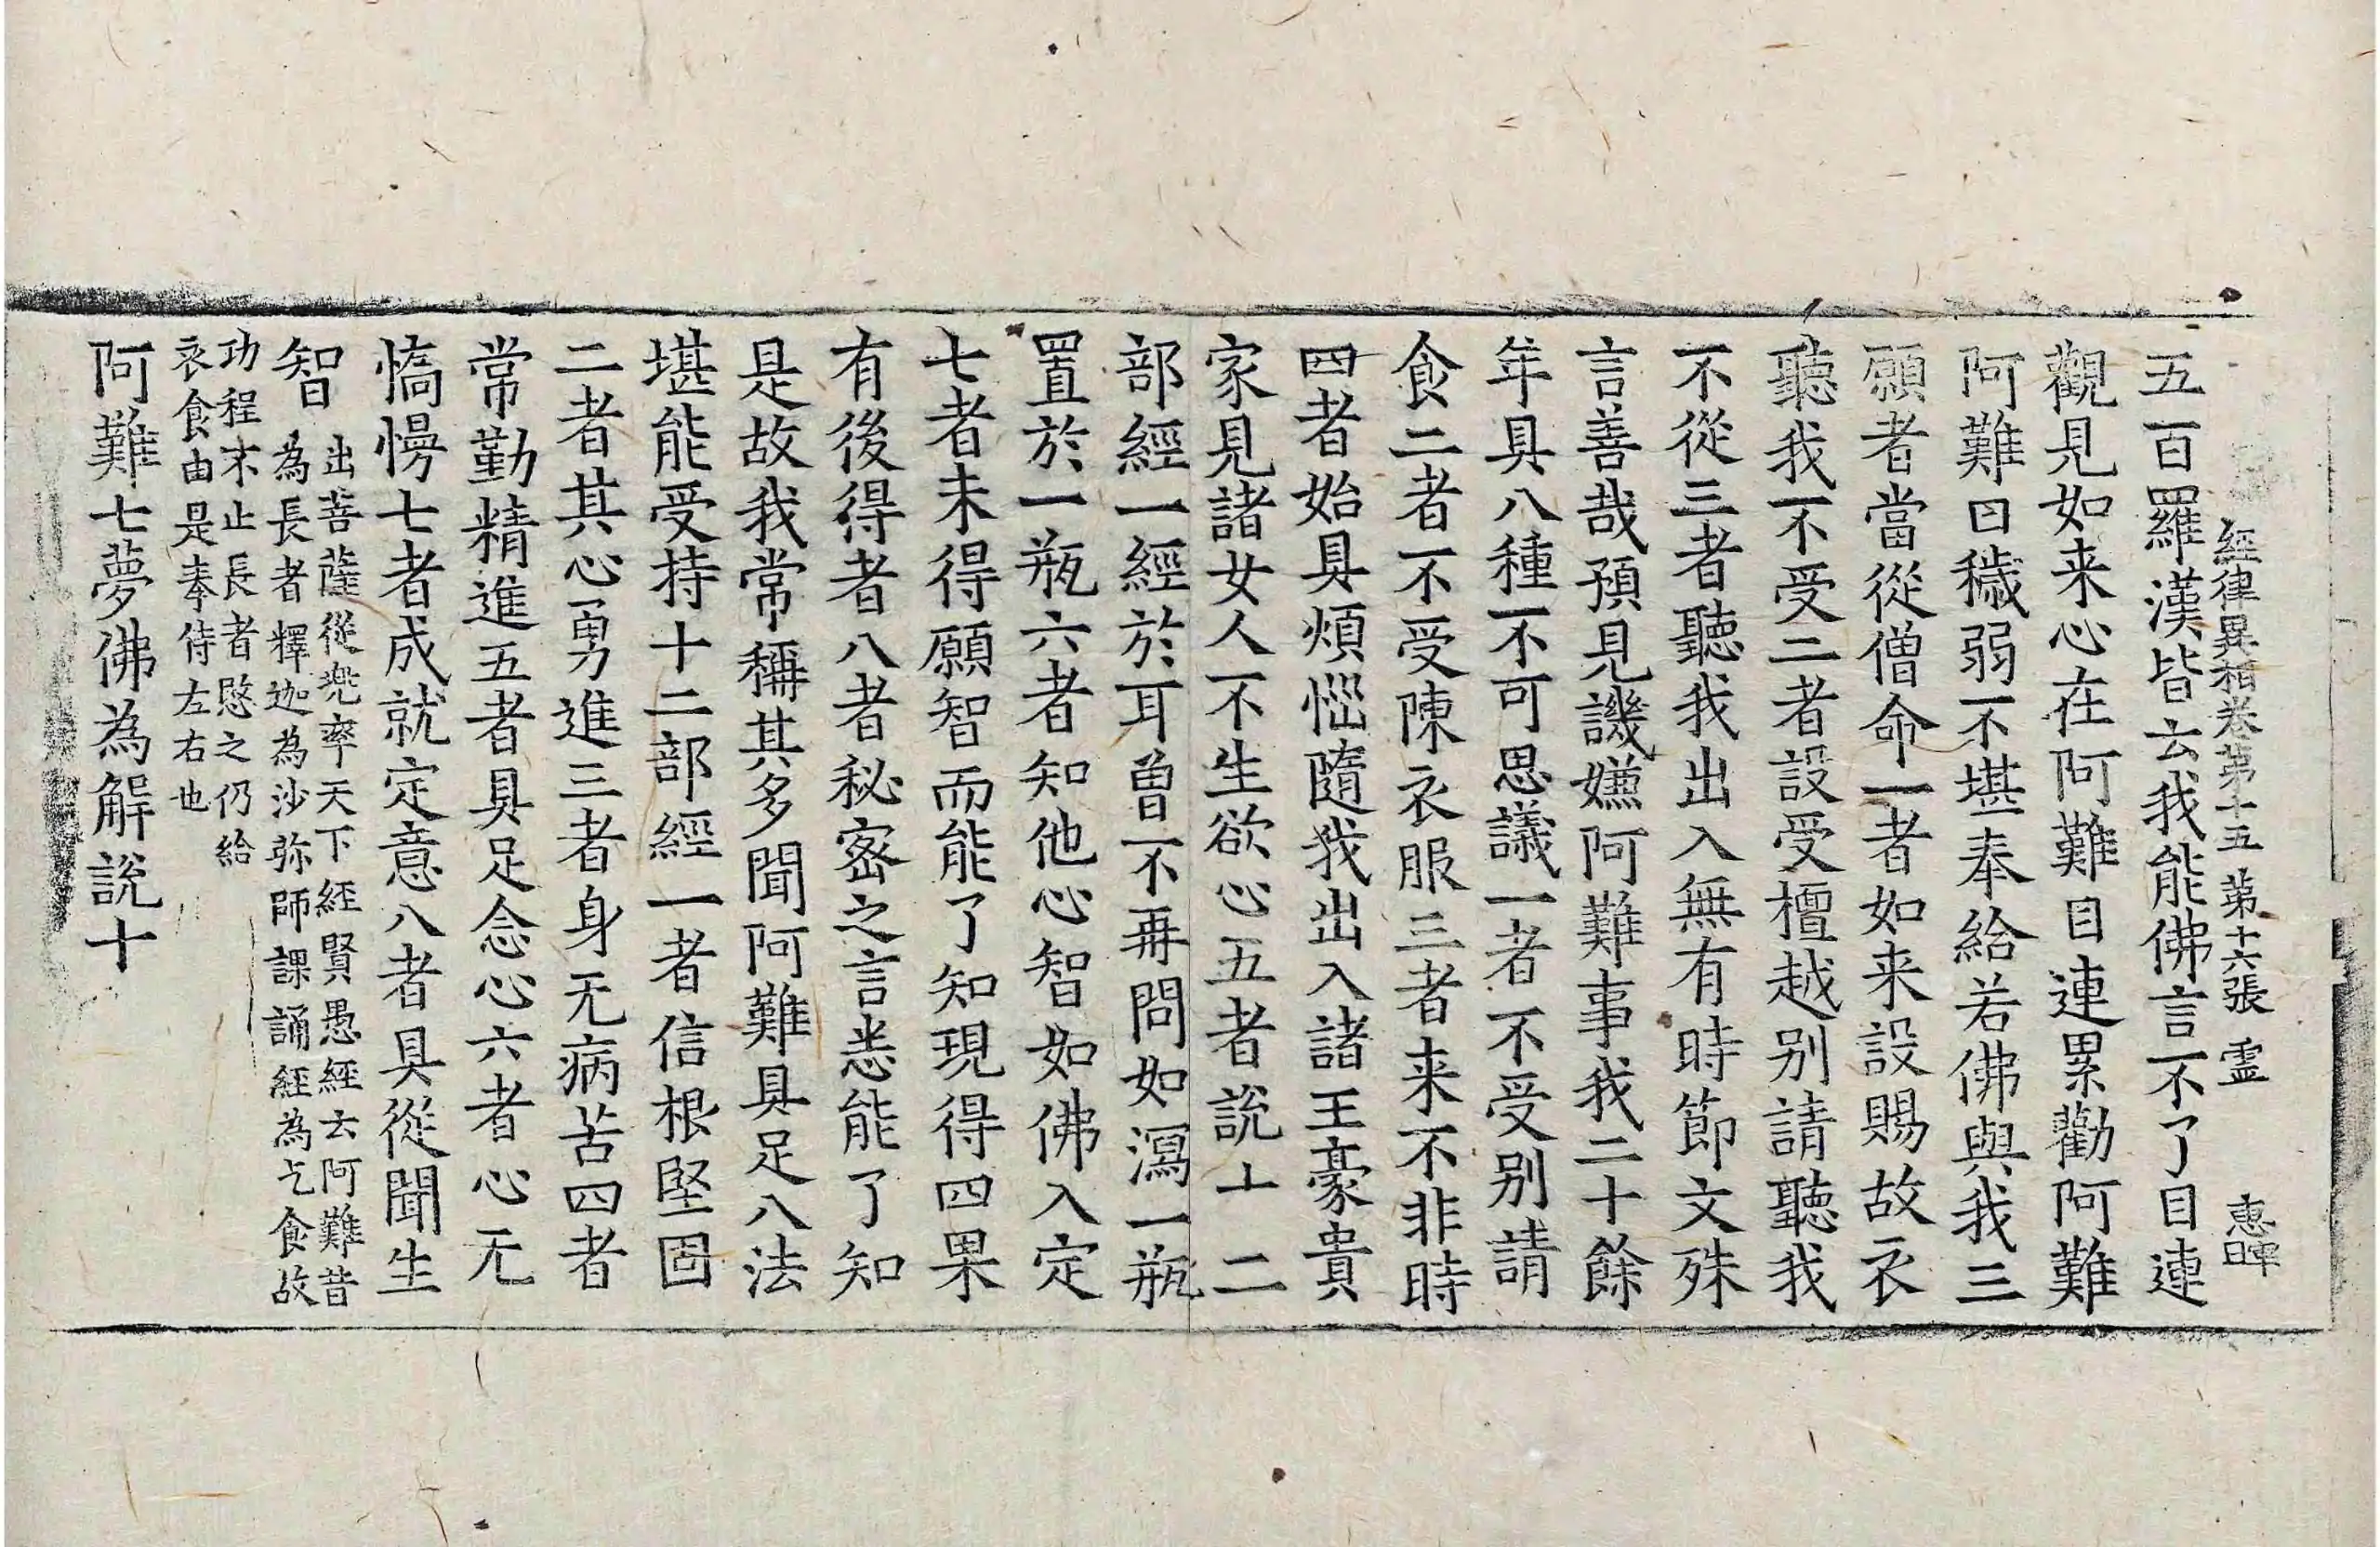 經律異相卷第十五 第十六張 霊 惠暉
五百羅漢皆云我能佛言不了目連
觀見如来心在阿難目連累勸阿難
阿難曰穢弱不堪奉給若佛與我三
願者當從僧命一者如来設賜故衣
聽我不受二者設受檀越别請聽我
不從三者聽我出入無有時節文殊
言善哉預見譏嫌阿難事我二十餘
年具八種不可思議一者不受别請
食二者不受陳衣服三者来不非時
四者始具煩惱隨我出入諸王豪貴
家見諸女人不生欲心五者說十二
部經一經於耳曽不再問如瀉一瓶
置於一瓶六者知他心智如佛入定
七者未得願智而能了知現得四果
有後得者八者秘密之言悉能了知
是故我常稱其多聞阿難具足八法
堪能受持十二部經一者信根堅固
二者其心勇進三者身无病苦四者
常勤精進五者具足念心六者心无
憍慢七者成就定意八者具從聞生
智 出菩薩從兜率天下經賢愚經云阿難昔
為長者釋迦為沙弥師課誦經為乞食故
功程不止長者愍之仍給
衣食由是奉侍左右也
阿難七夢佛為解說十